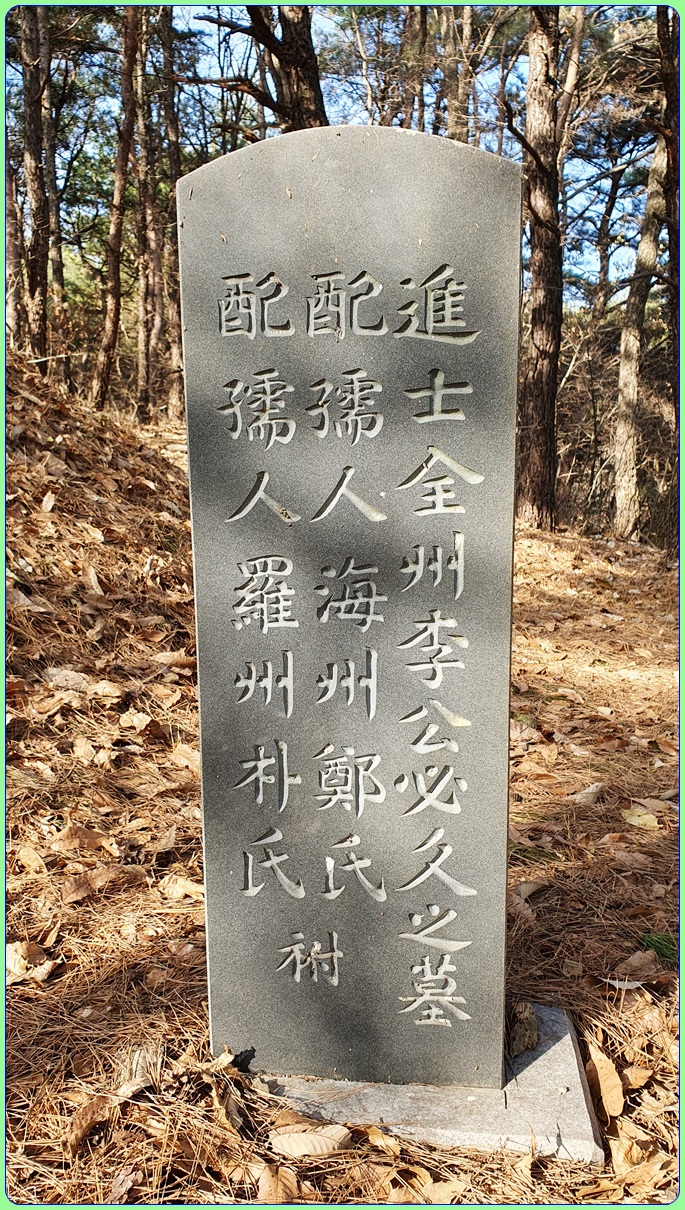 進士全州李公必久之墓
配孺人海州鄭氏
配孺人羅州朴氏
祔